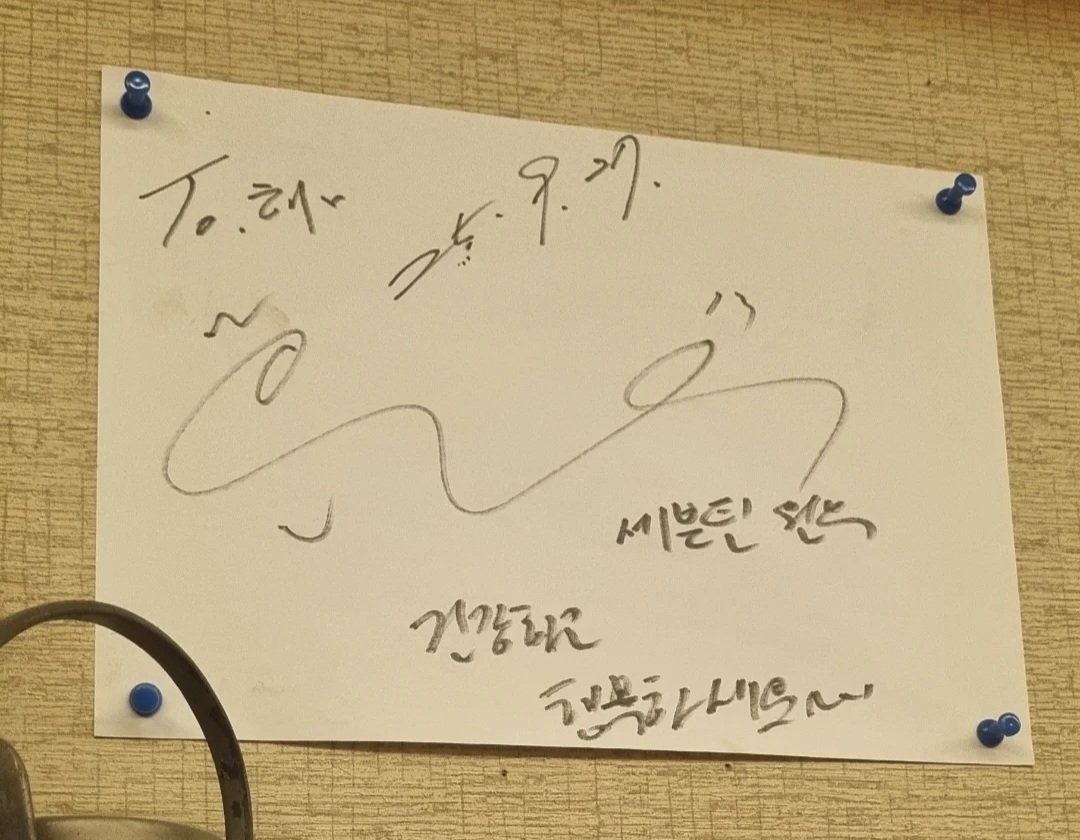 To.
25. 9. 27.
세븐틴 원우
건강하고
행복하세요~~